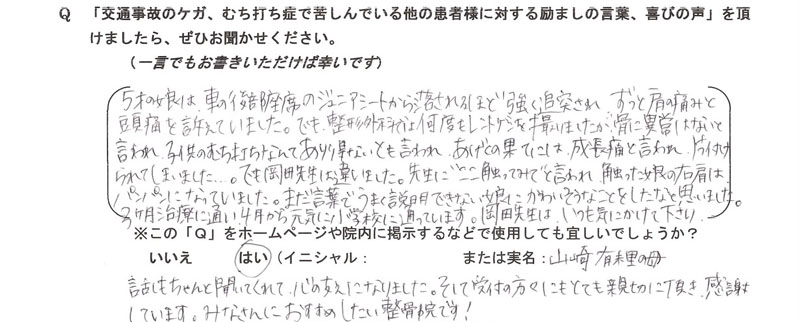 Q 「交通事故のケガ、むち打ち症で苦しんでいる他の患者様に対する励ましの言葉、喜びの声」を頂
けましたら、ぜひお聞かせください。
(一言でもお書きいただけば幸いです)
5才の娘は車の後部座席のジュニアシートから落されるほど強く追突され ずっと肩の痛みと
頭痛を訴えていました。でも、整形外科では何度もレントゲンを撮りましたが、骨に異常はないと
言われ、子供のむち打ちなんてあり得ないとも言われ、あげくの果てには、成長痛と言われ、片付け
られてしまいました…。でも岡田先生は違いました。先生に「ここ触ってみて」と言われ 触った娘の右肩は
パンパンになっていました。まだ言葉でうまく説明できない娘にかわいそうなことをしたなと思いました。
3ヶ月治療に通い 4月から元気に小学校に通っています。岡田先生は、いつも気にかけて下さい
※この「Q」をホームページや院内に掲示するなどで使用しても宜しいでしょうか?
いいえ はい (イニシャル: または実名: 山崎 有理の母
話しもちゃんと聞いてくれて、心の支えになりました。そして受付の方々にもとても親切に頂き、感謝
しています。みなさんにおすすめしたい整骨院です!